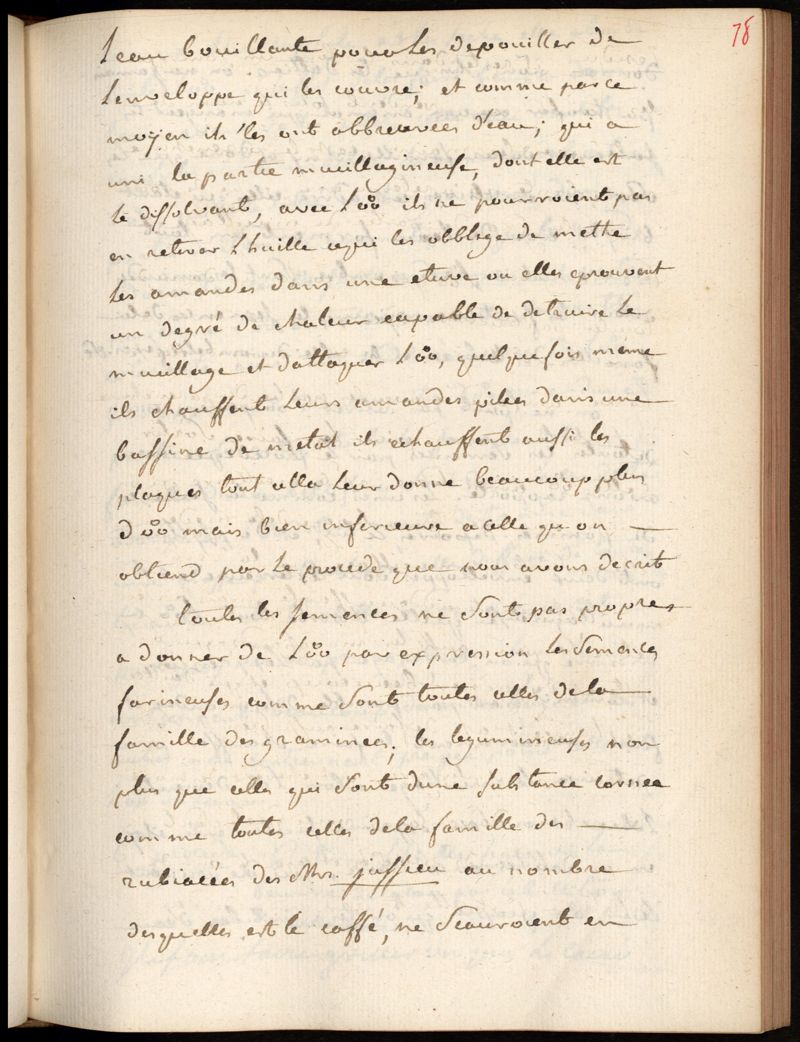 78
Leau bouillante pour Les depouiller de
Lenveloppe qui les couvre; et comme par ce
moyen ils les ont abbreuvées d'eau; qui a
uni la partie mucillagineuse, dont elle est
le dissolvant, avec L'oo ils ne pourroient pas
en retirer L'huille cequi les obblige de mettre
Les amandes dans une etuve ou elles eprouvent
un degré de chaleur capable de detruire Le
mucillage et dattaquer L'oo, quelquefois meme
ils chauffent Leurs amandes pilées dans une
bassine de metal ils echauffent aussi les
plaques tout cella Leur donne beaucoup plus
d'oo mais bien inferieure a celle qu on
obtiend par Le procede que nous avons decrit
toutes les semences ne sont pas propres
a donner de L'oo par expression les semences
farineuses comme sont toutes celles dela
famille des graminées; les legumineuses non
plus que celles qui sont dune substance cornée
comme toutes celles dela famille des
rubiacées des Mrs. jussieu au nombre
desquelles est le caffé, ne scauroient en